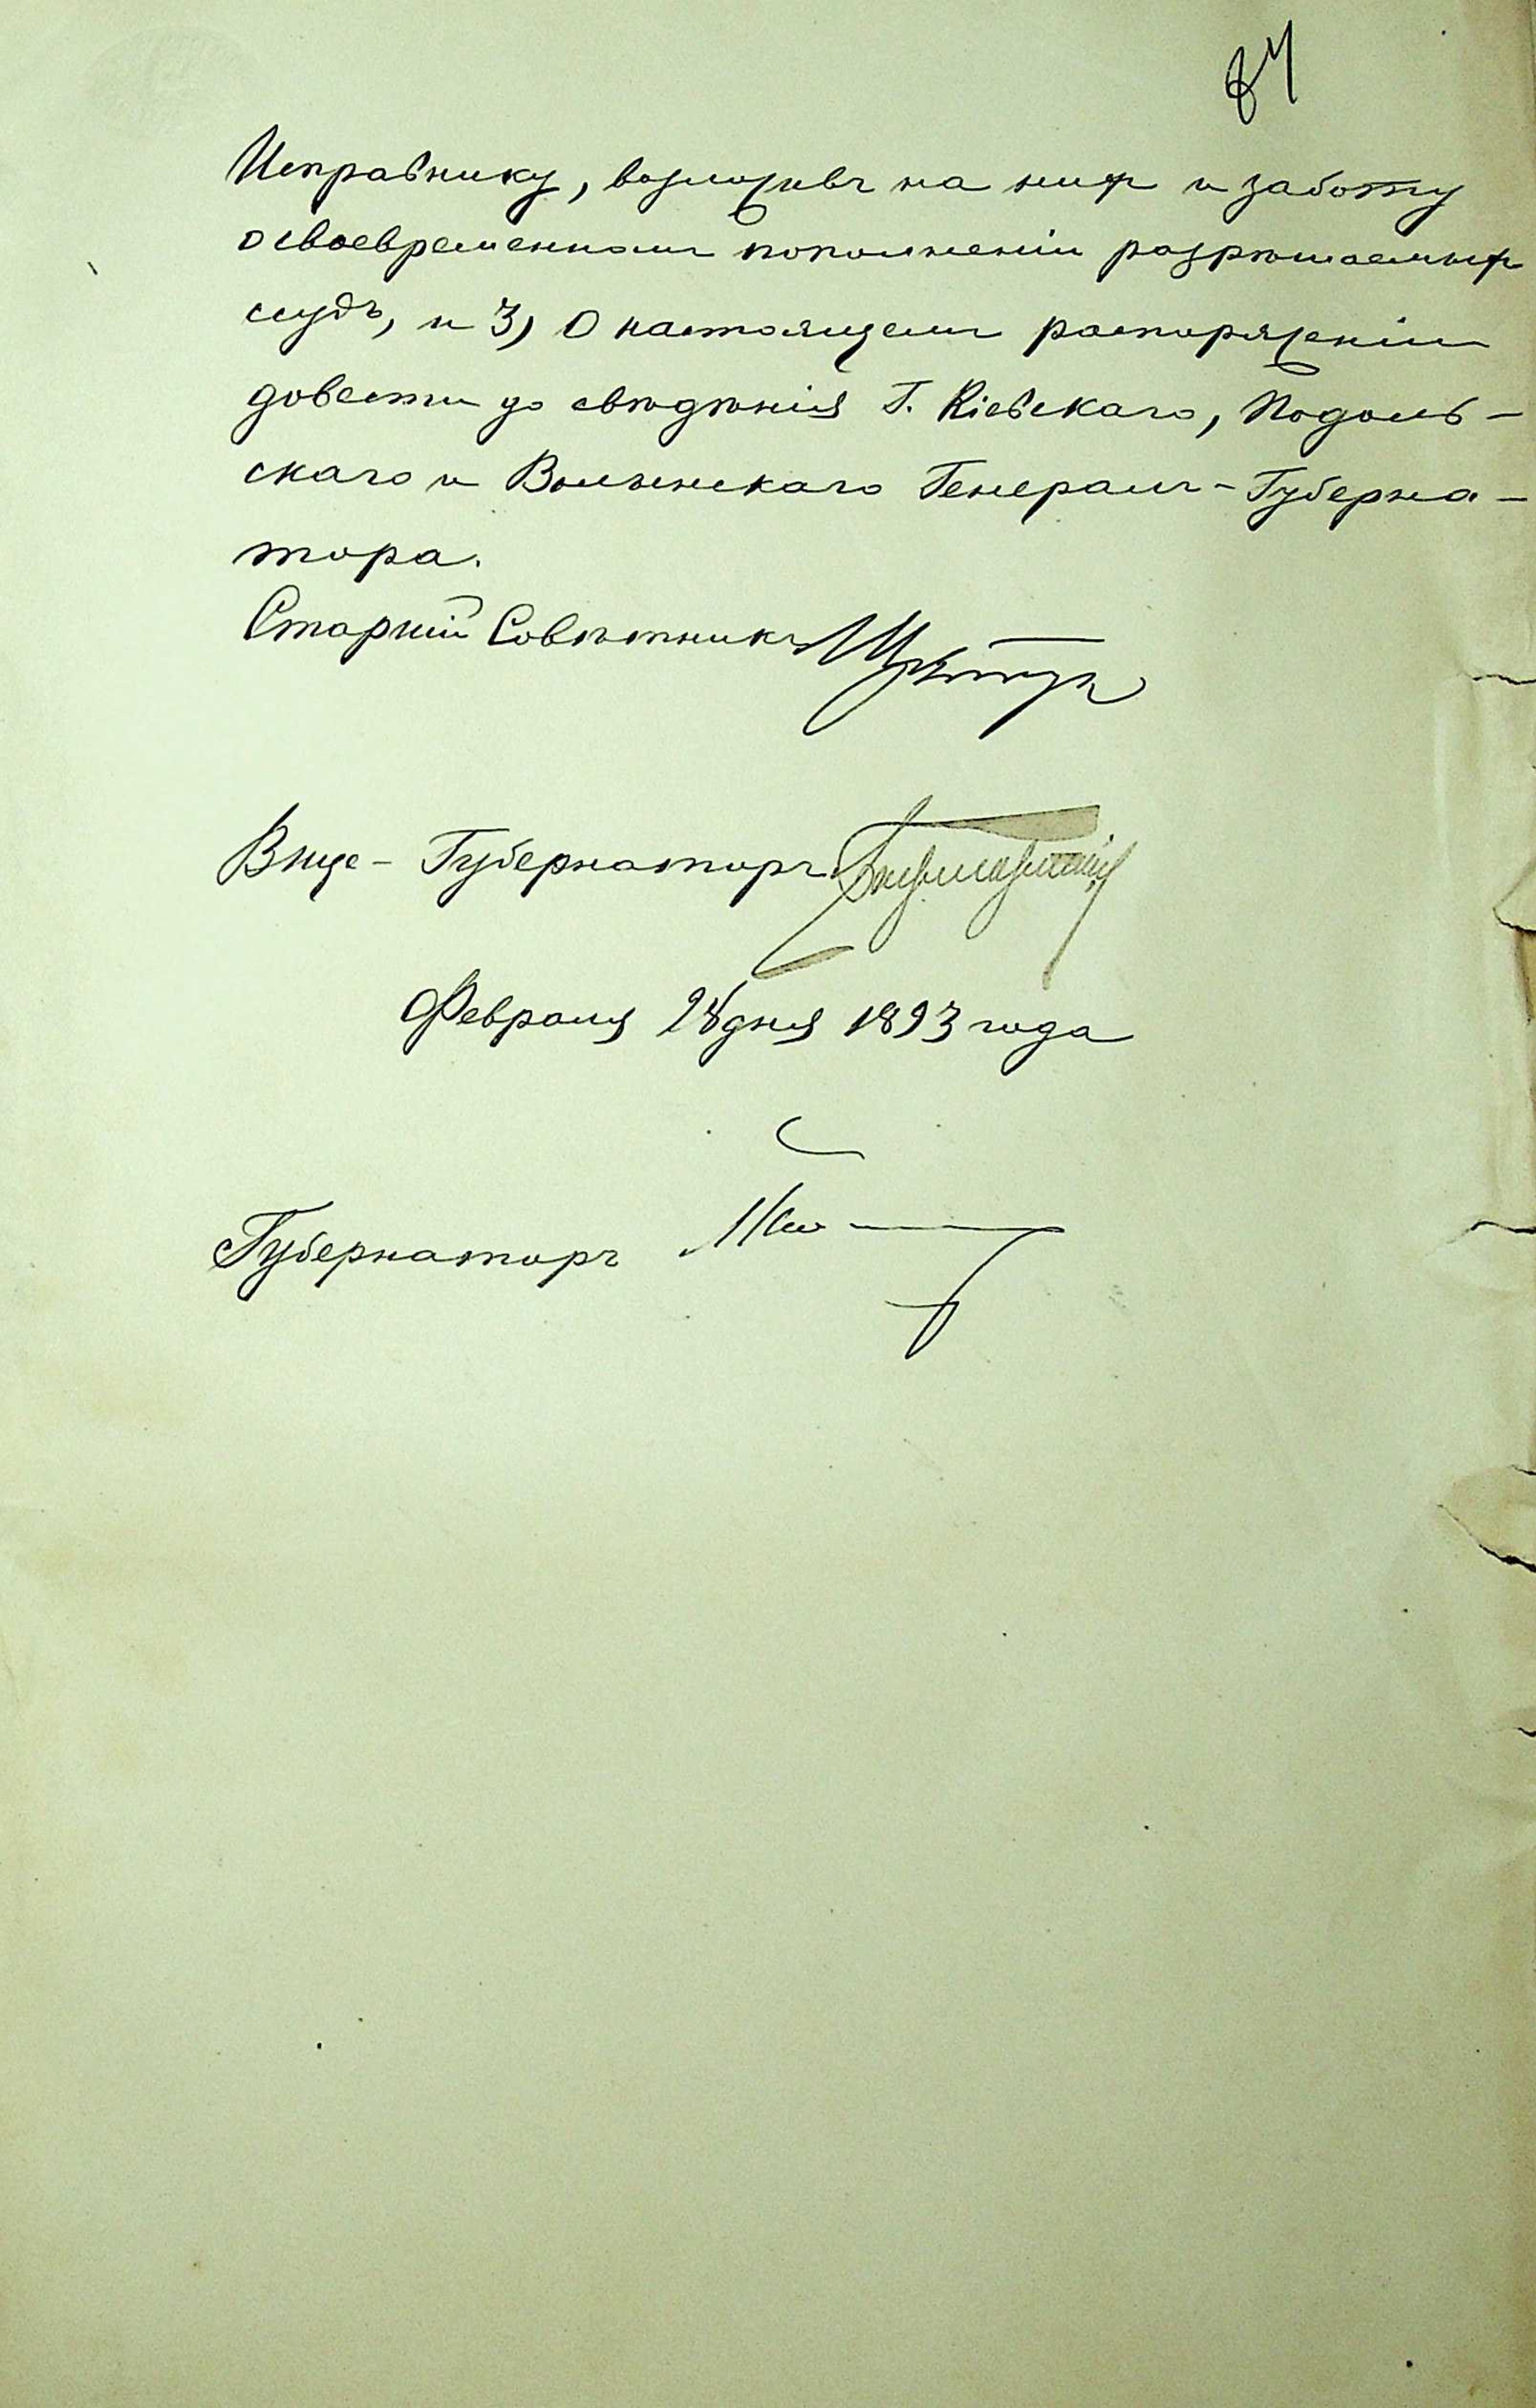 84
Исправнику, возложивъ на нихъ и заботу
о своевременномъ пополненіи разрѣшаемыхъ
ссудъ, и 3) О настоящемъ распоряженіи
довести до свѣдѣнія Г. Кіевскаго, Подоль-
скаго и Волынскаго Генералъ-Губерна-
тора.
Старшій Совѣтникъ
Вице-Губернаторъ
Февраля 28 дня 1893 года
Губернаторъ